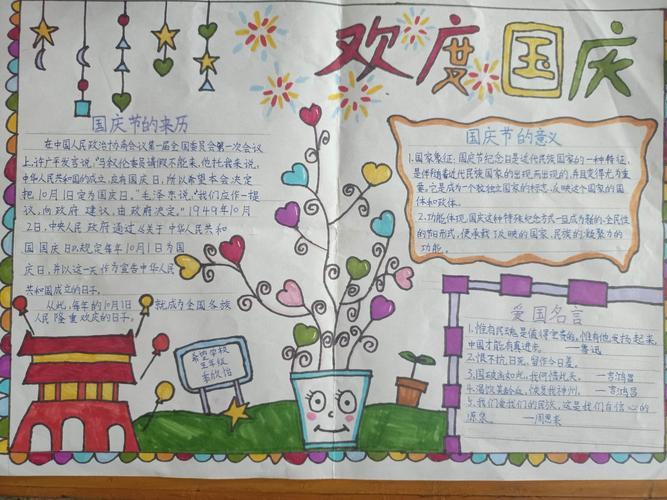 欢度国庆
国庆节的来历
在中国人民政治协商会议第一届全国委员会第一次会议
上,许广平发言说,"马叙伦委员请假不能来,他托我来说,
中华人民共和国的成立,应有国庆日,所以希望本会决定
把10月1日定为国庆日。"毛泽东说,"我们应作一提
议,向政府建议,由政府决定。"1949年10月
2日,中央人民政府通过《关于中华人民共和
国国庆日》,规定每年10月1日为国
庆日,并以这一天作为宣告中华人民
共和国成立的日子。
从此,每年的10月1日就成为全国各族
人民隆重欢庆的日子。
希望学校
五年级
李欣怡
国庆节的意义
1.国家象征:国庆节纪念日是近代民族国家的一种特征,
是伴随着近代民族国家的出现而出现的,并且变得尤为重
要。它是成为一个独立国家的标志,反映这个国家的国
体和政体。
2.功能体现,国庆这种特殊纪念方式一旦成为新的、全民性
的节日形式,便承载了反映的国家、民族的凝聚力的
功能。
爱国名言
1.惟有民魂是值得宝贵的,惟有他发扬起来,
中国才能有真进步。 ——鲁迅
2.恨不抗日死,留作今日羞。
3.国破尚如此,我何惜此头。 ——吉鸿昌
4.渴饮美龄血,恢复我神州。 ——吉鸿昌
5.我们爱我们的民族,这是我们自信心的
源泉。 ——周恩来